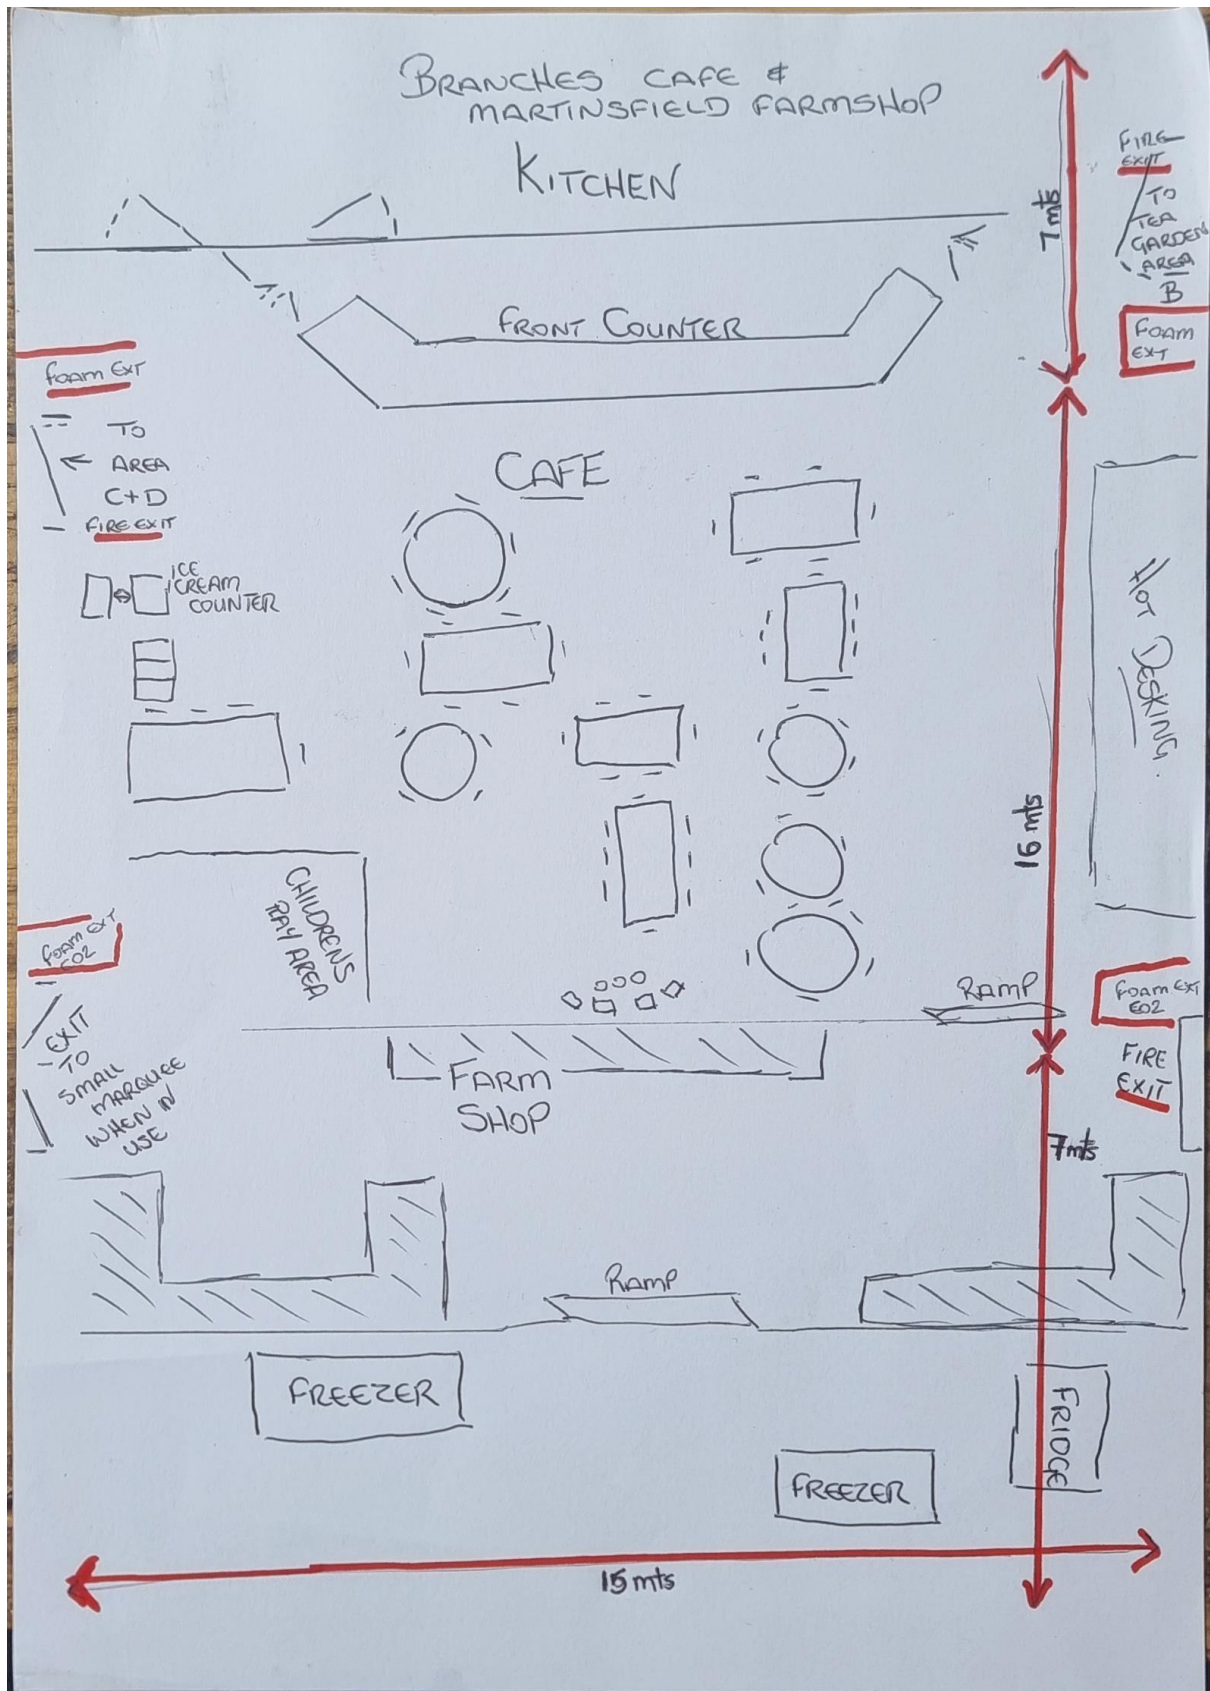 BRANCHES CAFE &
MARTINSFIELD FARMSHOP
KITCHEN
7 mts
FIRE
EXIT
TO
TEA
GARDEN
AREA
B
FOAM
EXT
FRONT COUNTER
FOAM EXT
TO
AREA
C+D
FIRE EXIT
CAFE
ICE
CREAM
COUNTER
HOT DESKING
16 mts
CHILDRENS
PLAY AREA
FOAM EXT
CO2
EXIT
TO
SMALL
MARQUEE
WHEN IN
USE
RAMP
FOAM EXT
CO2
FIRE
EXIT
FARM
SHOP
7 mts
RAMP
FREEZER
FRIDGE
FREEZER
15 mts